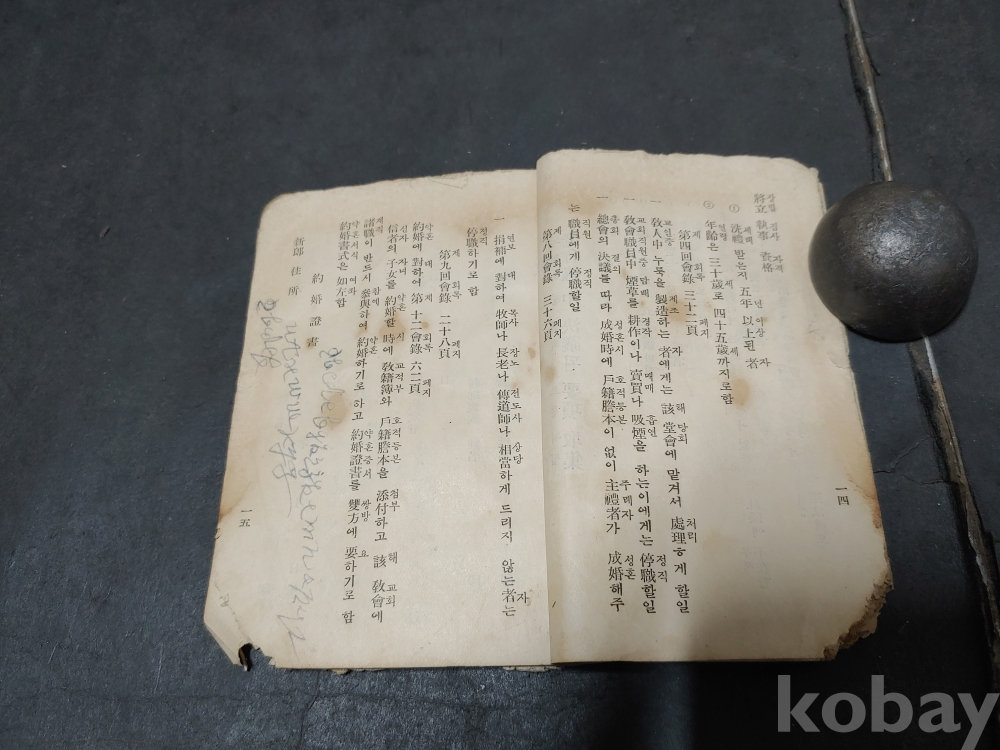 將立執事 資格
① 洗禮받은지 五年 以上된 者
② 年齡은 三十歲로 四十五歲까지로함
第四回會錄 三十二頁
一 敎人中누룩을 製造하는 者에게는 該堂會에 맡겨서 處理하게 할일
一 敎會職員中 煙草를 耕作이나 賣買나 吸煙을 하는이에게는 停職할일
一 總會의 決議를 따라 成婚時에 戶籍謄本이 없이 主禮者가 成婚해주
는 職員에게 停職할일
第八回會錄 三十六頁
一四
一 捐補에 對하여 牧師나 長老나 傳道師나 相當하게 드리지 않는者는
停職하기로 함
第九回會錄 二十八頁
約婚에 對하여 第十二會錄 六二頁
信者의 子女를 約婚할 時에 敎籍簿와 戶籍謄本을 添付하고 該 敎會에
諸職이 반드시 參與하여 約婚하기로 하고 約婚證書를 雙方에 要하기로 함
約婚書式은 如左함
約婚證書
新郞 住所
一五
kobay